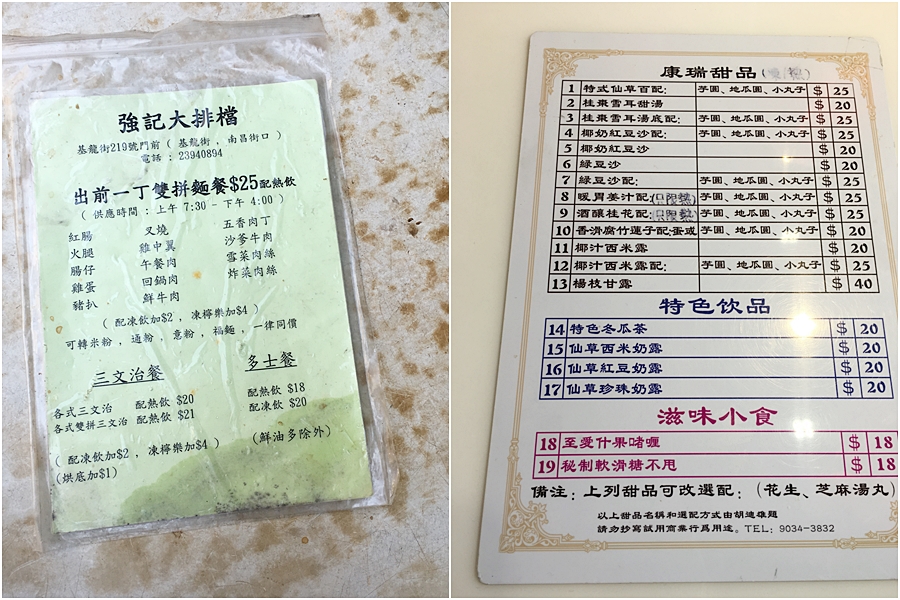 強記大排檔
基龍街219號門前 ( 基龍街 , 南昌街口 )
電話 : 23940894
出前一丁雙拼麵餐$25配熱飲
( 供應時間 : 上午 7:30 - 下午 4:00 )
紅腸 叉燒 五香肉丁
火腿 雞中翼 沙爹牛肉
腸仔 午餐肉 雪菜肉絲
雞蛋 回鍋肉 炸菜肉絲
豬扒 鮮牛肉
( 配凍飲加$2 , 凍檸樂加$4 )
可轉米粉 , 通粉 , 意粉 , 福麵 , 一律同價
三文治餐
各式三文治 配熱飲 $20
各式雙拼三文治 配熱飲 $21
( 配凍飲加$2 , 凍檸樂加$4 )
(烘底加$1)
多士餐
配熱飲 $18
配凍飲 $20
(鮮油多除外)
康瑞甜品
1 特式仙草百配: 芋圓、地瓜圓、小丸子 $ 25
2 桂棗雪耳甜湯 $ 20
3 桂棗雪耳湯底配: 芋圓、地瓜圓、小丸子 $ 25
4 椰奶紅豆沙配: 芋圓、地瓜圓、小丸子 $ 25
5 椰奶紅豆沙 $ 20
6 綠豆沙 $ 20
7 綠豆沙配: 芋圓、地瓜圓、小丸子 $ 25
8 暖胃姜汁配:(只限熱) 芋圓、地瓜圓、小丸子 $ 25
9 酒釀桂花配: 只限熱 芋圓、地瓜圓、小丸子 $ 25
10 香滑腐竹蓮子配:蛋或 芋圓、地瓜圓、小丸子 $ 25
11 椰汁西米露 $ 20
12 椰汁西米露配: 芋圓、地瓜圓、小丸子 $ 25
13 楊枝甘露 $ 40
特色饮品
14 特色冬瓜茶 $ 20
15 仙草西米奶露 $ 20
16 仙草紅豆奶露 $ 20
17 仙草珍珠奶露 $ 20
滋味小食
18 至愛什果啫喱 $ 18
19 秘制軟滑糖不甩 $ 18
備注: 上列甜品可改選配: (花生、芝麻湯丸)
以上甜品名稱和選配方式由胡迪雄題
請勿抄寫試用商業行爲用途。TEL: 9034-3832